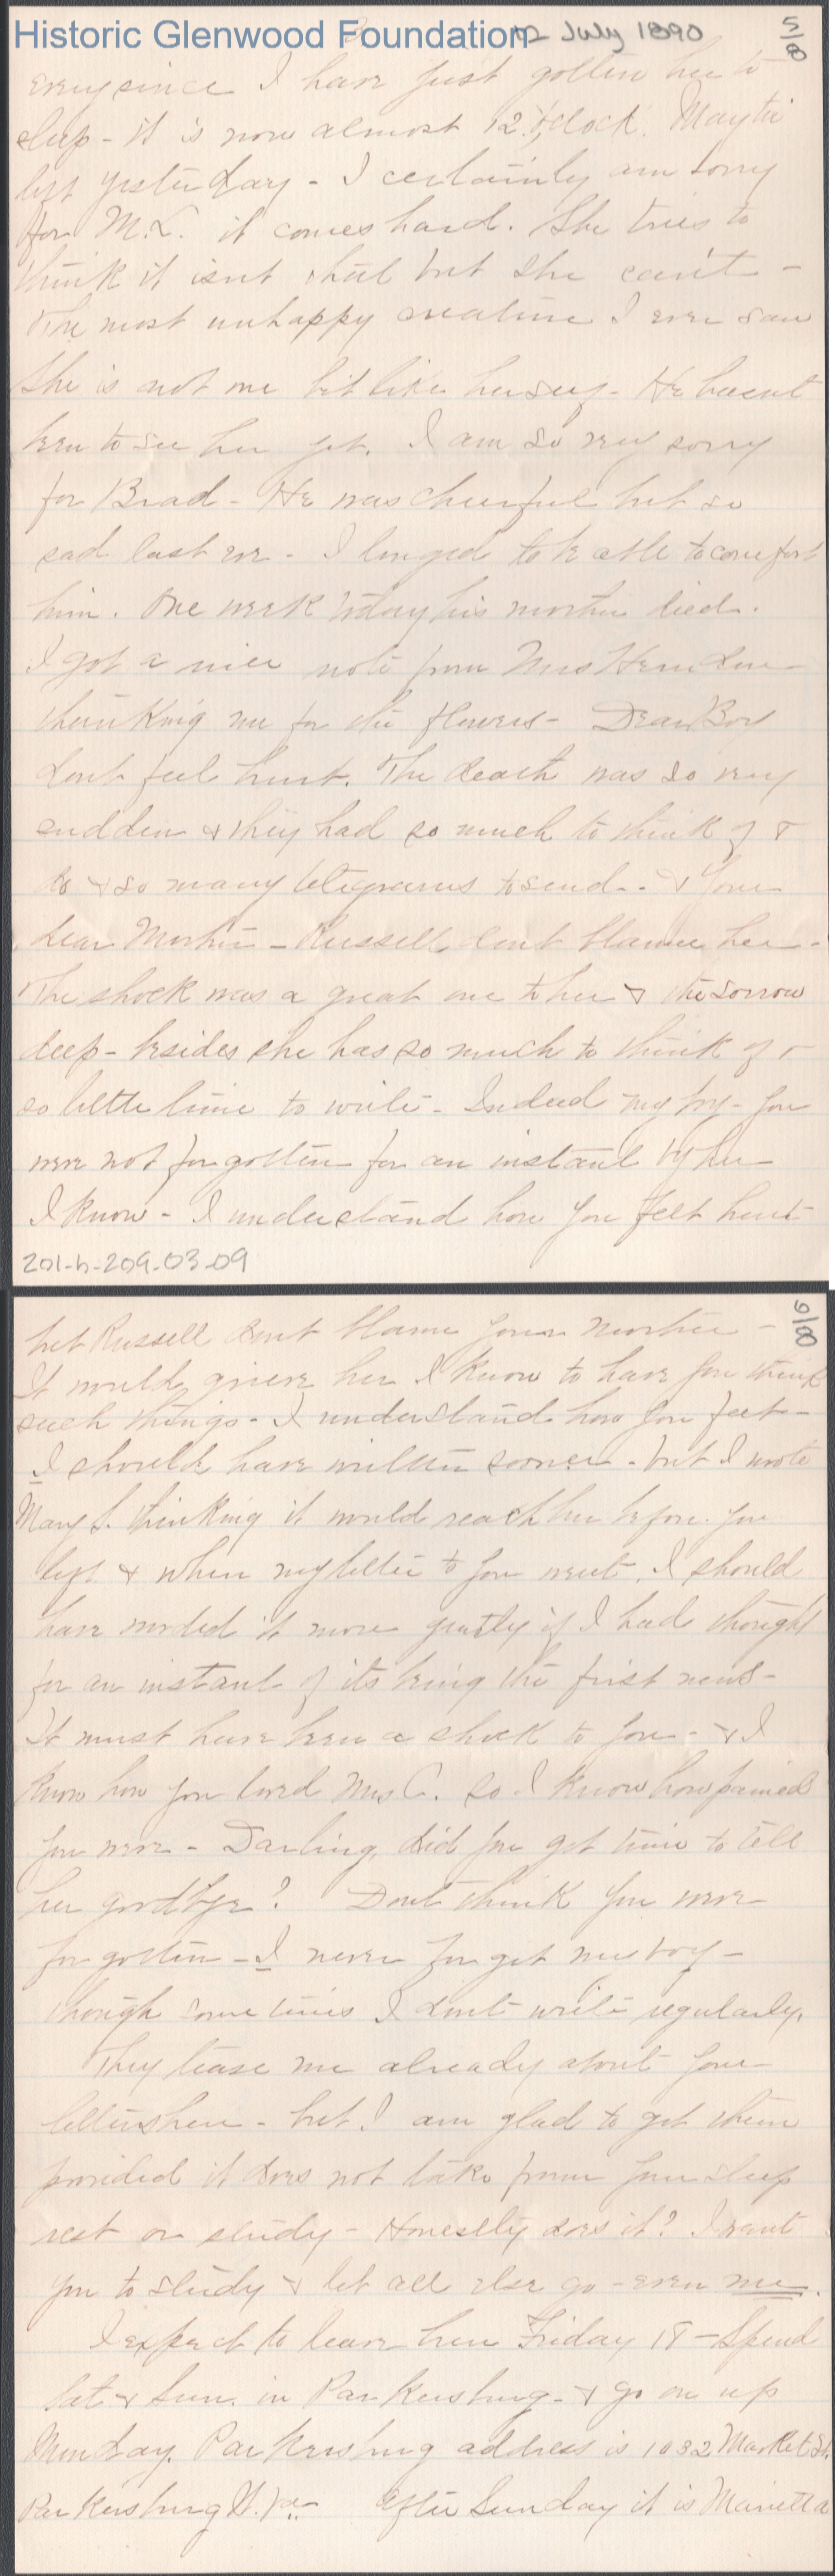 Historic Glenwood Foundation
12 July 1890
5/8
ever since I have just gotten her to
sleep - it is now almost 12 o'clock.
left yesterday - I certainly am sorry
for M.L. it comes hard. She tries to
think it isnt but she can't -
The most unhappy creature I ever saw
She is not one bit like herself - He hasent
been to see her yet. I am so very sorry
for Brad - He was cheerful but so
sad last eve - I longed to be able to comfort
him. One week today his mother died.
I got a nice note from Mrs
thanking me for the flowers - Dear Boy
dont feel hurt. The death was so very
sudden & they had so much to think of &
do & so many telegrams to send - & Your
dear Mother - Russell, dont blame her -
The shock was a great one to her & the sorrow
deep - besides she has so much to think of &
so little time to write - Indeed my boy - you
were not forgotten for an instant by her
I know - I understand how you felt hurt
201-h-209-03-09
6/8
but Russell dont blame your Mother -
It would grieve her I know to have you think
such things - I understand how you feel -
I should have written sooner - but I wrote
Mary S. thinking it would reach her before you
left & when my letter to you went, I should
have worded it more gently if I had thought
for an instant of its being the first news -
It must have been a shock to you - & I
know how you loved Mrs C. so I know how pained
you were - Darling, did you get time to tell
her goodbye? Dont think you were
forgotten - I never forget my boy -
though some times I dont write regularly.
They tease me already about your
letters here - but I am glad to get them
provided it does not take from your sleep
rest or study - Honestly does it? I want
you to study & let all else go - even me.
I expect to leave here Friday 18 - Spend
Sat & Sun. in Parkersburg - & go on up
Monday. Parkersburg address is 1032 Market St.
Parkersburg W. Va. After Sunday it is Marietta